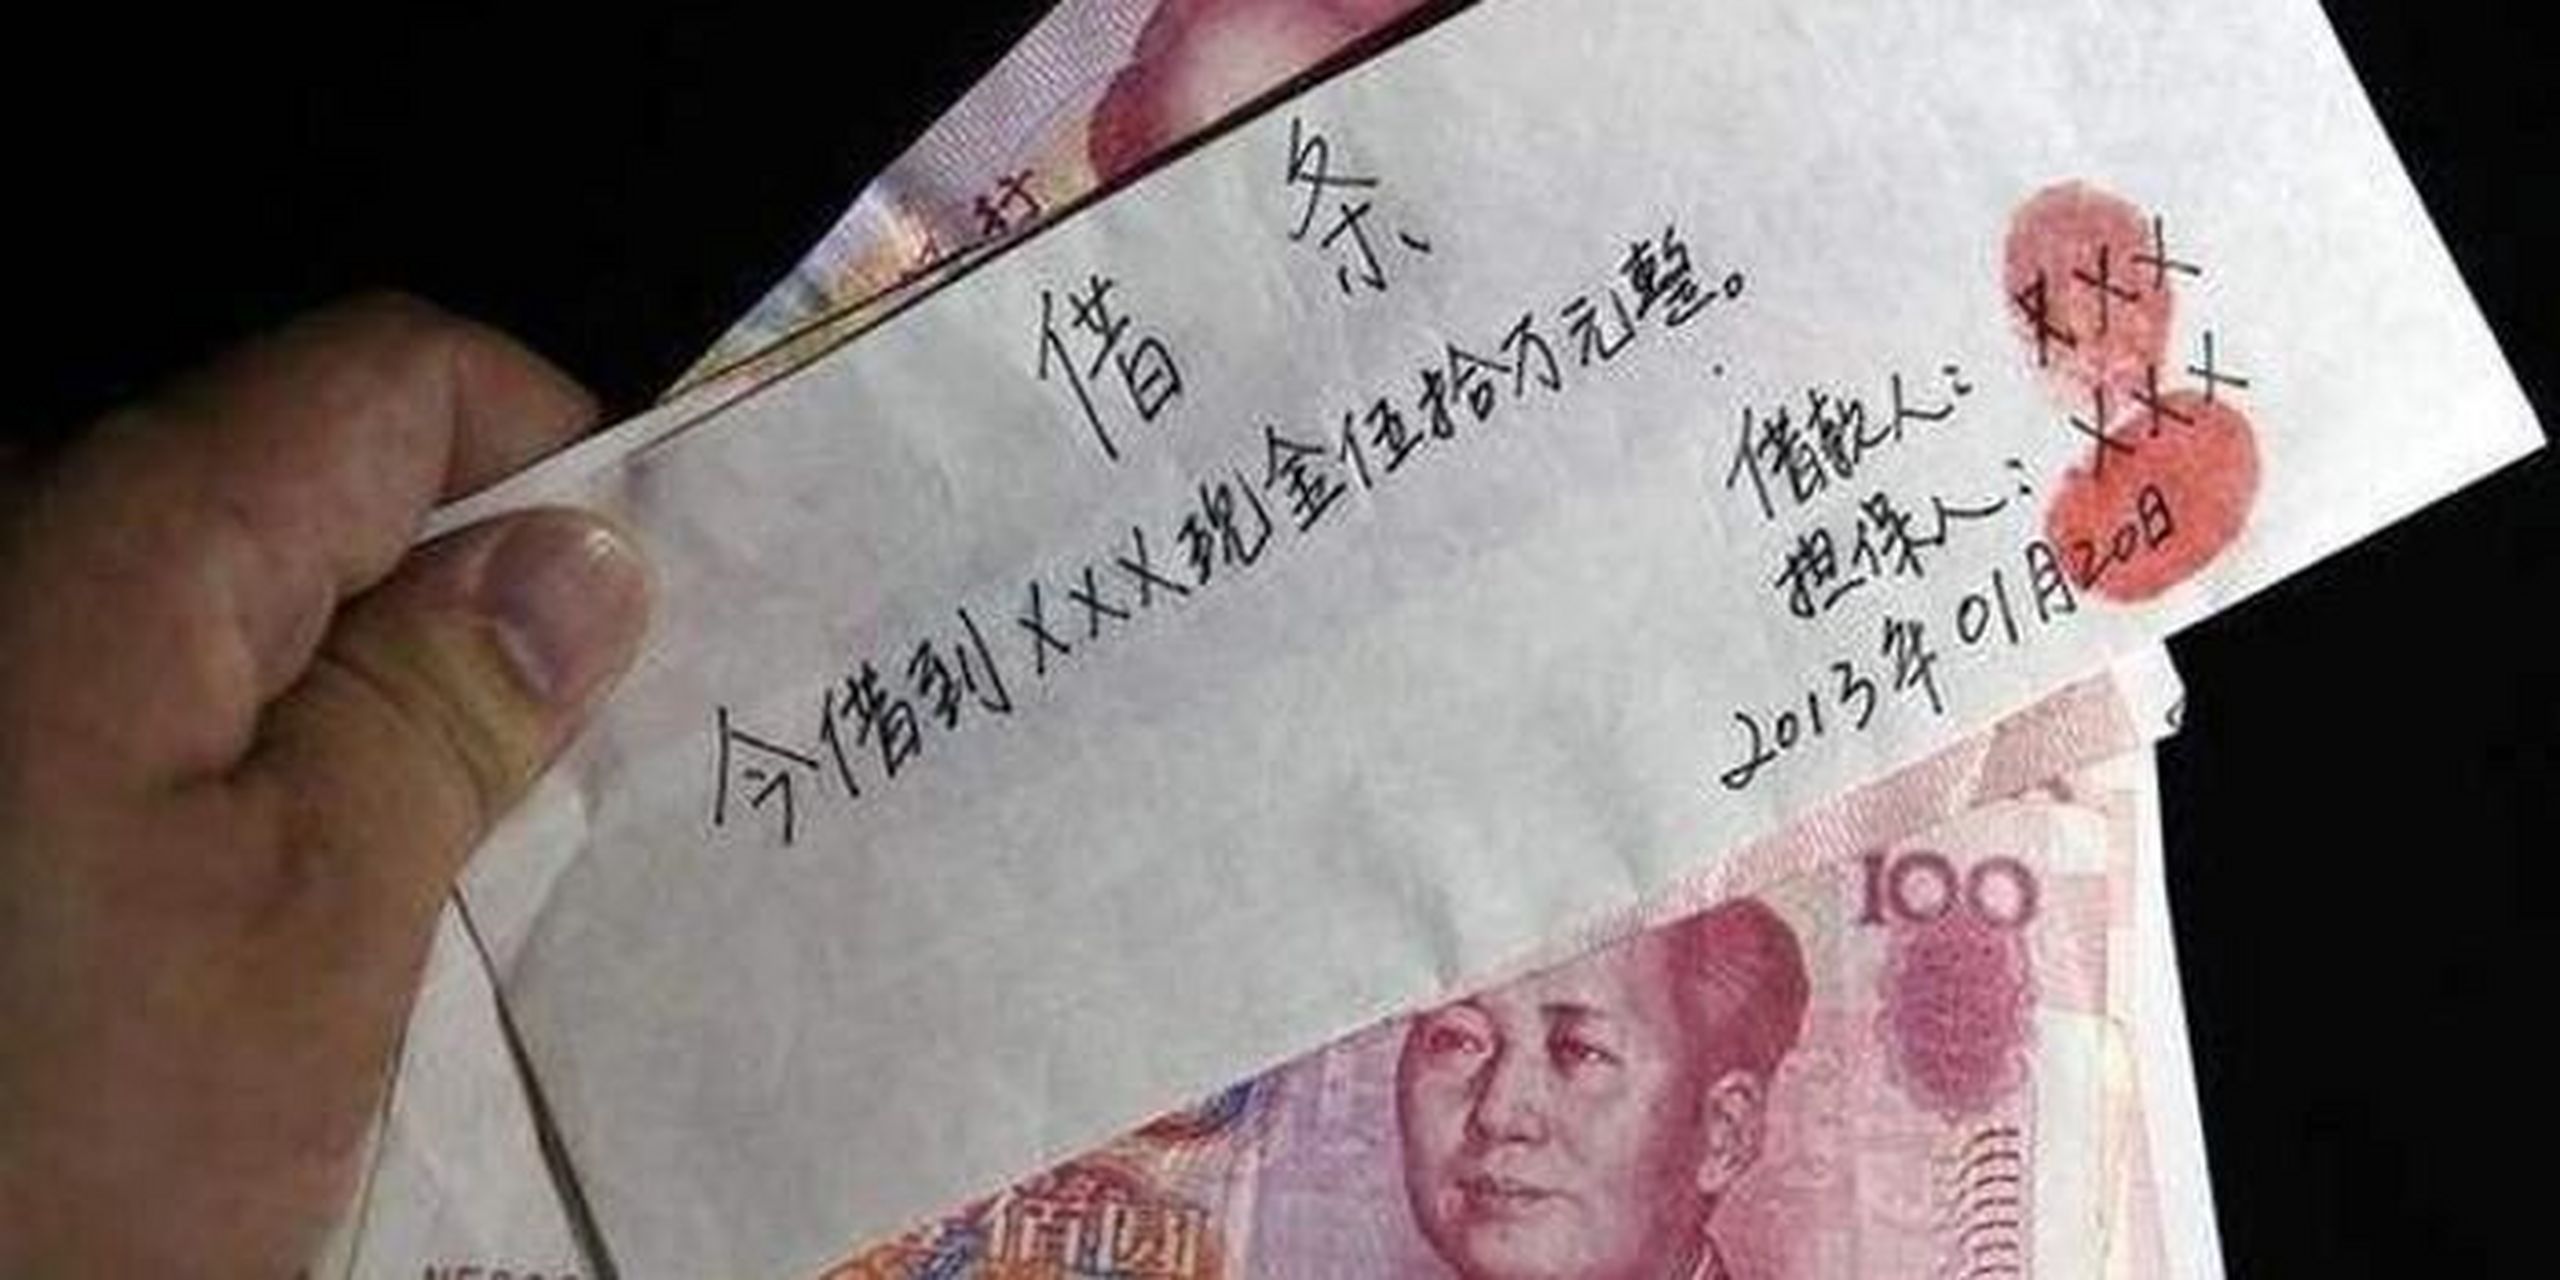 行
借 条
今借到XXX现金伍拾万元整。
借款人：XXX
担保人：XXX
2013年01月20日
100